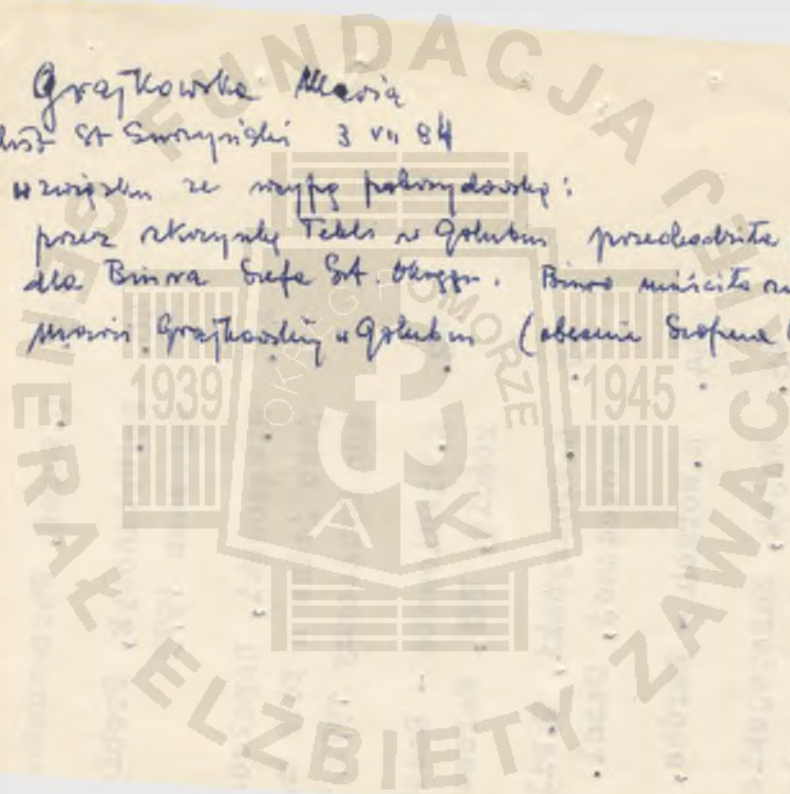 Grajkowska Maria
list St Surzyński 3 VII 84
w związku ze wsypą
przez skrzynkę Tekli w Golubiu przechodziła
dla Biura Szefa Szt. Okręgu. Biuro mieściło
Marii Grajkowskiej w Golubiu (obecnie Szopena
FUNDACJA GENERAŁ ELŻBIETY ZAWACKIEJ
OKRĘG POMORZE
1939 1945
A K